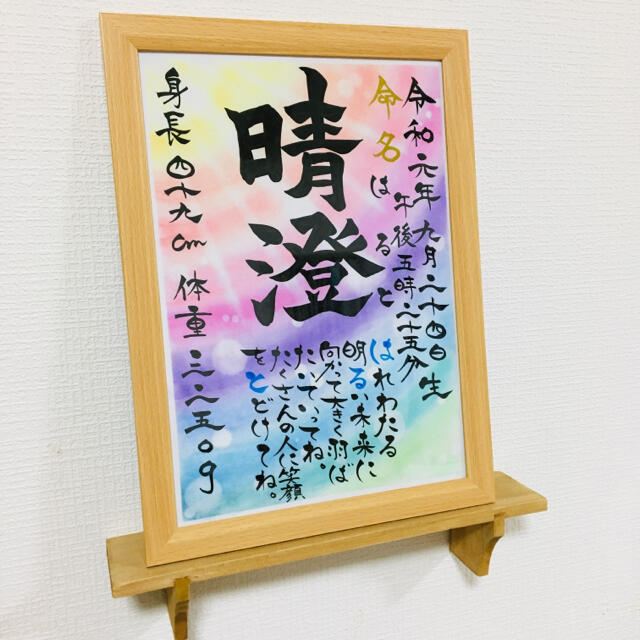 令和元年九月二十四日生
午後五時二十五分
命名
はると
晴澄
はれわたる
明るい未来に
向かて大きく羽ば
たいていってね。
たくさんの人に笑顔
をとどけてね。
身長四十九cm 体重三二五〇g